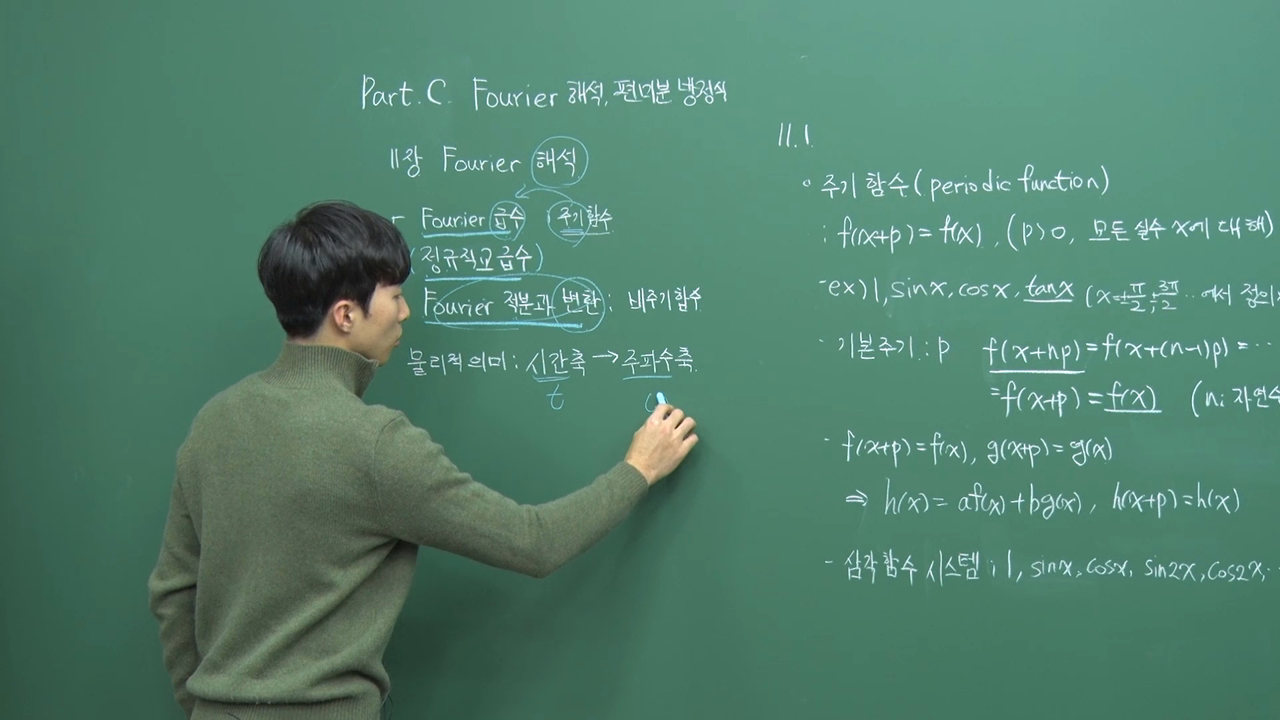 Part.C. Fourier 해석, 편미분 방정식
11장 Fourier 해석
- Fourier 급수 : 주기함수
(정규직교 급수)
Fourier 적분과 변환 : 비주기함수
물리적 의미 : 시간축 → 주파수축
t
11.1
∘ 주기 함수 (periodic function)
: f(x+p) = f(x), (p>0, 모든 실수 x에 대해)
- ex) 1, sinx, cosx, tanx (x≠±π/2, ±3π/2 ··· 에서 정의
- 기본주기 : p f(x+np) = f(x+(n-1)p) = ···
= f(x+p) = f(x) (n: 자연수
- f(x+p) = f(x), g(x+p) = g(x)
⇒ h(x) = af(x) + bg(x), h(x+p) = h(x)
- 삼각함수 시스템 : 1, sinx, cosx, sin2x, cos2x, ··